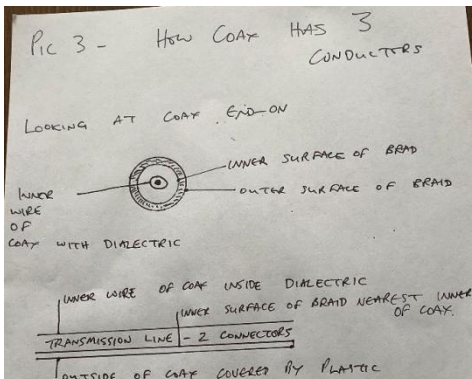 PIC 3 - HOW COAX HAS 3
CONDUCTORS
LOOKING AT COAX END-ON
INNER SURFACE OF BRAD
OUTER SURFACE OF BRAID
INNER
WIRE
OF
COAX WITH DIALECTRIC
INNER WIRE OF COAX INSIDE DIALECTRIC
INNER SURFACE OF BRAID NEAREST INNER
OF COAX.
TRANSMISSION LINE - 2 CONNECTORS
OUTSIDE OF COAX COVERED BY PLASTIC